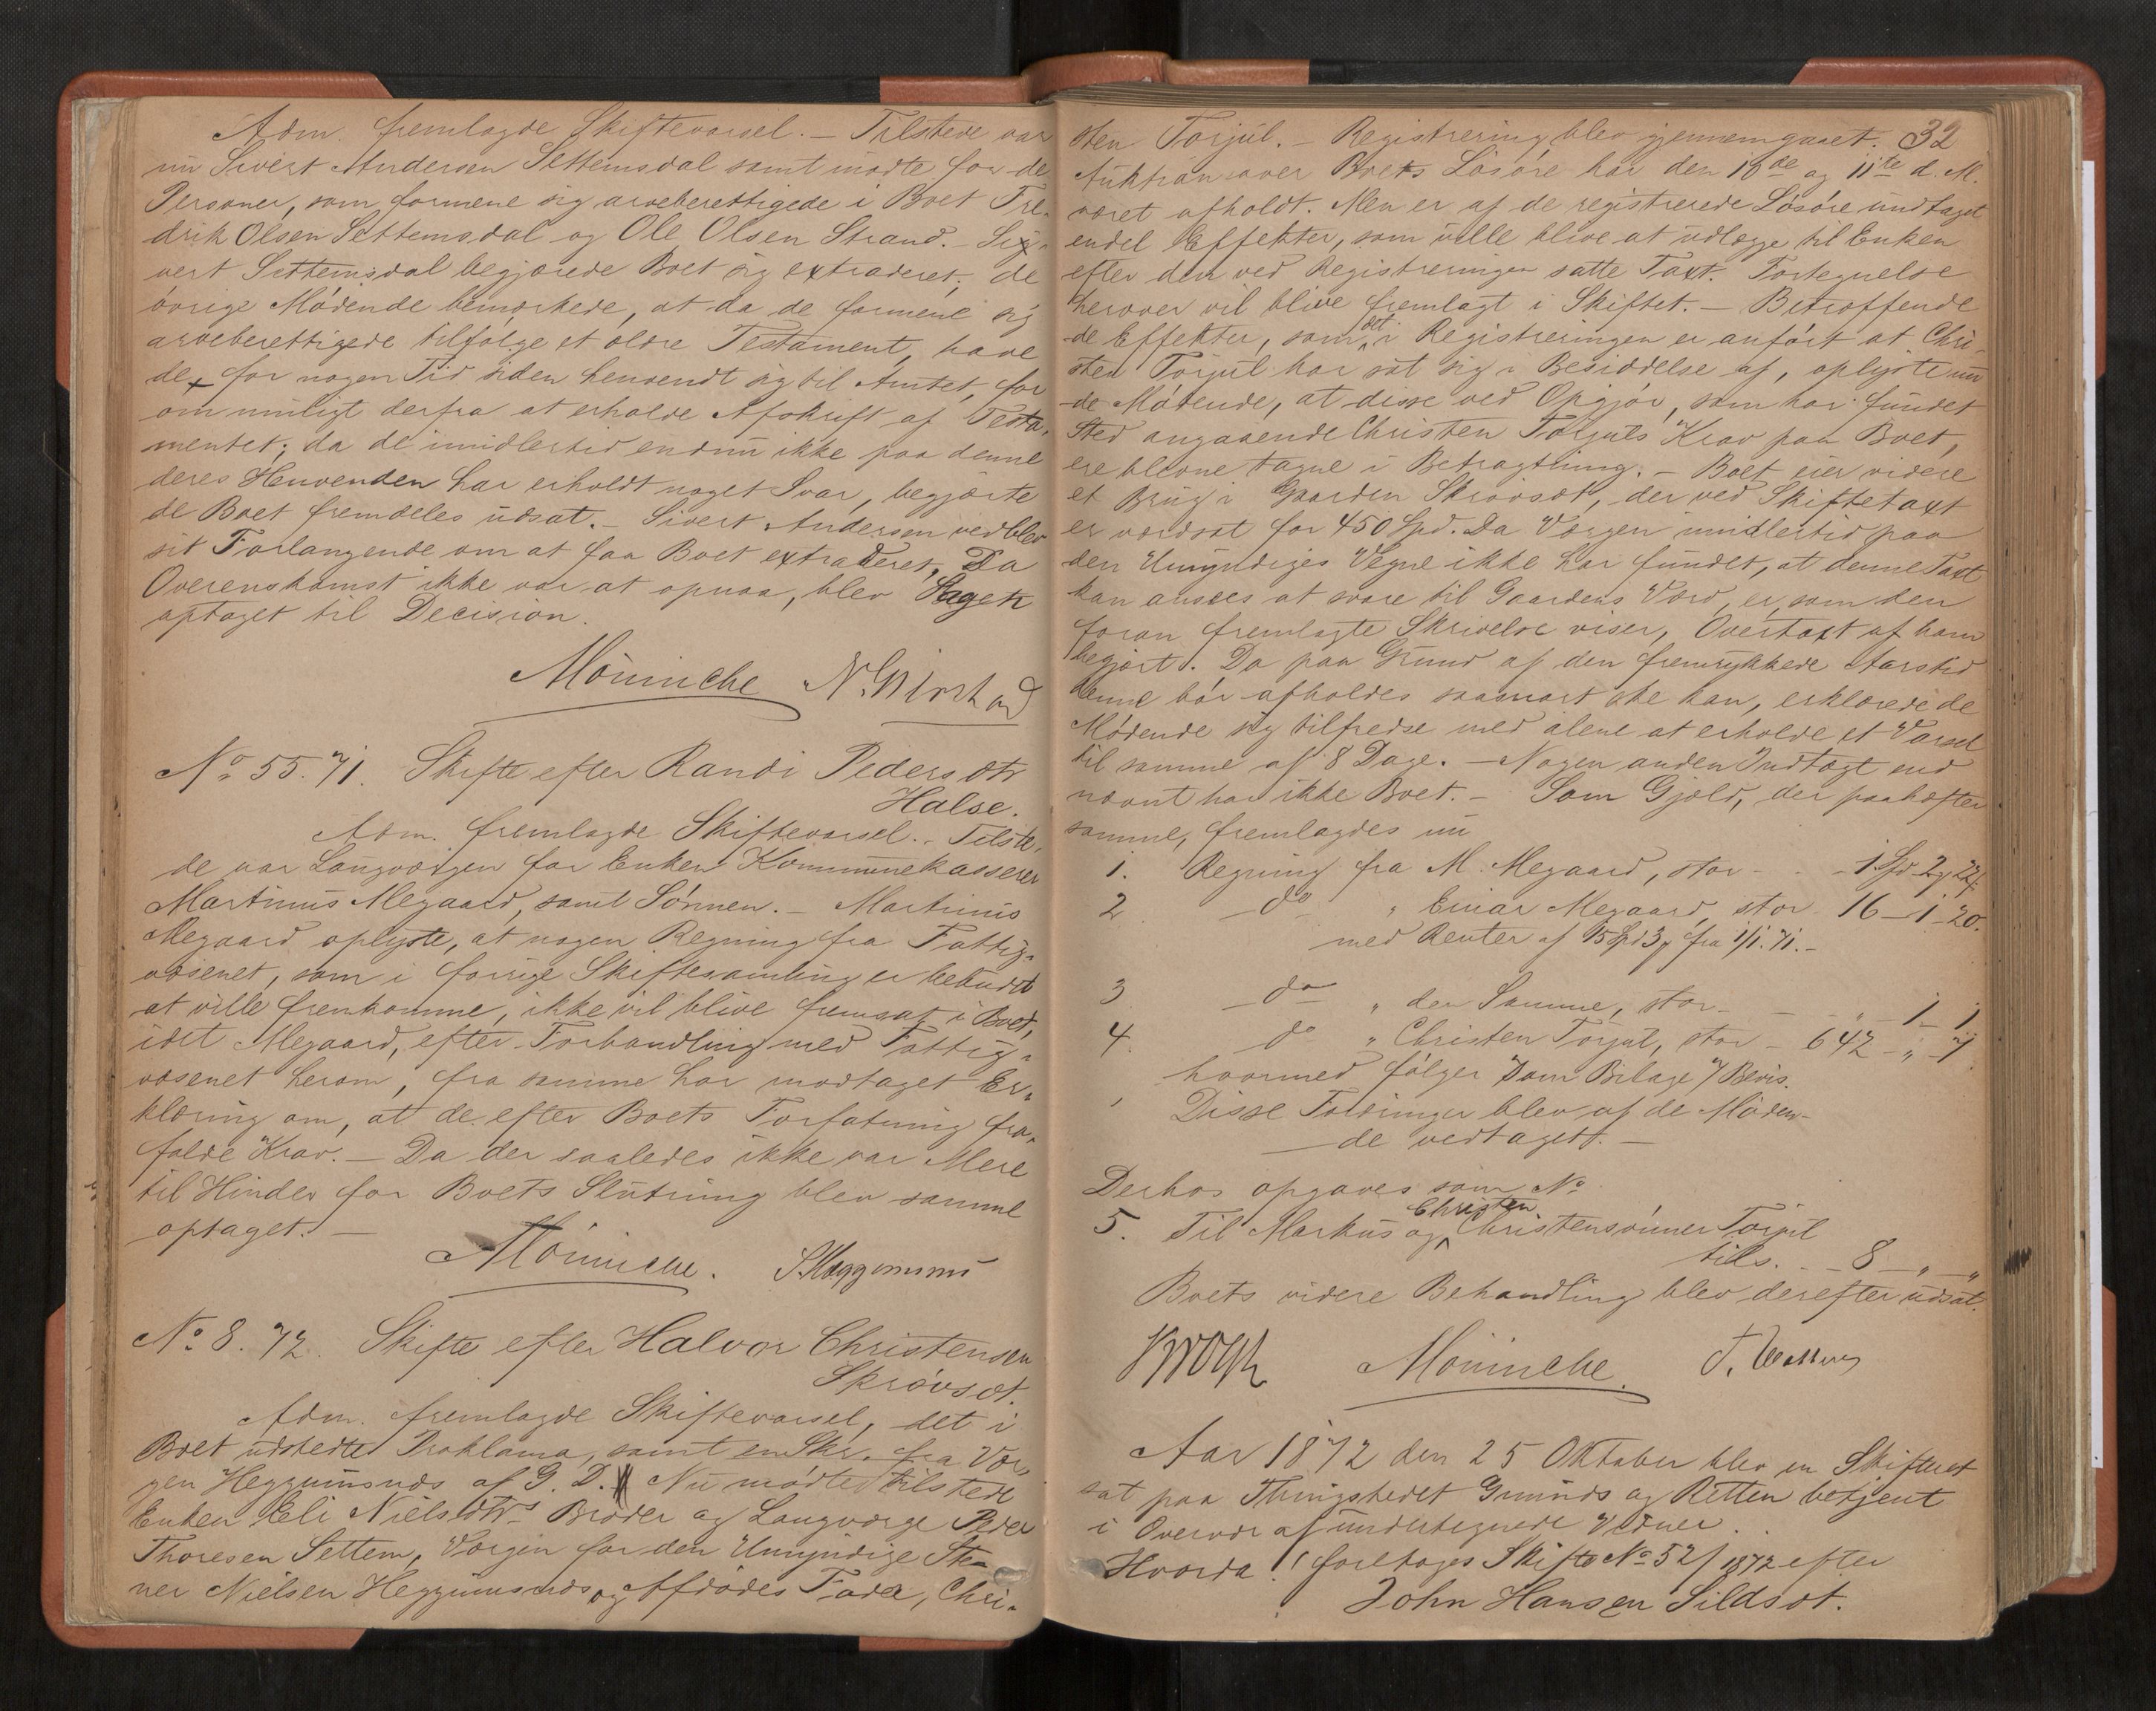 Adm. fremlagde Skiftevarsel. – Tilstede var
nu Sivert Andersen Settemsdal samt mødte for de
Personer, som formene sig arveberettigede i Boet Fre-
drik Olsen Settemsdal og Ole Olsen Strand. – Si-
vert Settemsdal begjærede Boet sig extraderet; de
øvrige Mødende bemærkede, at da de formene sig
arveberettigede tilfølge et ældre Testament, have
de for nogen Tid siden henvendt sig til Amtet, for
om muligt derfra at erholde Afskrift af Testa-
mentet; da de imidlertid endnu ikke paa denne
deres Henvenden har erholdt noget Svar, begjærte
de Boet fremdeles udsat. – Sivert Andersen vedblev
sit Forlangende om at faa Boet extraderet. Da
Overenskomst ikke var at opnaa, blev Sagen
optaget til Decision.
Mönniche
No 55.71. Skifte efter Randi Pedersdtr
Halse.
Adm. fremlagde Skiftevarsel. – Tilste-
de var Laugværgen for Enken Kommunekasserer
Martinus Megaard, samt Sönnen. – Martinus
Megaard oplyste, at nogen Regning fra Fattig-
væsenet, som i forrige Skiftesamling er bebudet
at ville fremkomme, ikke vil blive fremsat i Boet,
idet Megaard, efter Forhandling med Fattig-
væsenet herom, fra samme har modtaget Er-
klæring om, at de efter Boets Forfatning fra-
falde Krav. – Da der saaledes ikke var Mere
til Hinder for Boets Slutning blev samme
optaget. –
Mönniche. S Heggumsnæs
No 8. 72. Skifte efter Halvor Christensen
Skrøvsæt.
Adm. fremlagde Skiftevarsel, det i
Boet udstedte Proklama, samt en Skr. fra Vær-
gen Heggumsnæs af G. D. Nu mødte tilstede
Enken Eli Nielsdtrs Broder og Laugværge Peder
Thoresen Settem, Værgen for den Umyndige Ste-
ner Nielsen Heggumsnæs og Afdødes Fader, Chri-
32
sten Torjul. – Registrering blev gjennemgaaet.
Auktion over Boets Løsøre har den 10de og 11te d. M.
været afholdt. Men er af de registrerede Løsøre undtaget
endel Effekter, som ville blive at udlægge til Enken
efter den ved Registreringen satte Taxt. Fortegnelse
herover vil blive fremlagt i Skiftet. – Betræffende
de Effekter, som det i Registreringen er anført at Chri-
sten Torjul har sat sig i Besiddelse af, oplyste nu
de Mødende, at disse ved Opgjør, som har fundet
Sted angaaende Christen Torjuls Krav paa Boet,
ere blevne tagne i Betragtning. – Boet eier videre
et Brug i Gaarden Skrøvsæt, der ved Skiftetaxt
er værdsat for 450 Spd. Da Værgen imidlertid paa
den Umyndiges Vegne ikke har fundet, at denne Taxt
kan ansees at svare til Gaardens Værd, er, som den
foran fremlagte Skrivelse viser, Overtaxt af ham
begjært. Da paa Grund af den fremrykkede Aarstid
denne bør afholdes saasnart ske kan, erklærede de
Mødende sig tilfredse med alene at erholde et Varsel
til samme af 8 Dage. – Nogen anden Indtægt end
nævnt har ikke Boet. – Som Gjæld, der paahæfter
samme, fremlagdes nu
1. Regning fra M. Megaard, stor - - 1 Spd 2 22
2 do " Einar Megaard, stor 16 – 1 – 20.
med Renter af 15 Spd 3 fra 1/1. 71. –
3 do " den Samme, stor - - " – 1 – 1
4. do " Christen Torjul, stor – 642 – " – 7
hvormed følger som Bilage 7 Bevis.
Disse Fordringer blev af de Møden-
de vedtaget. –
Derhos opgaves som No
5. Til Markus og Christen Christensønner Torjul
tils. - - 8 – " – "
Boets videre Behandling blev derefter udsat.
Krogh Mönniche.
Aar 1872 den 25 Oktober blev en Skifteret
sat paa Thingstedet Gimnæs og Retten betjent
i Overvær af undertegnede Vidner.
Hvorda! foretages Skifte No 52/1872 efter
John Hansen Sildsæt.